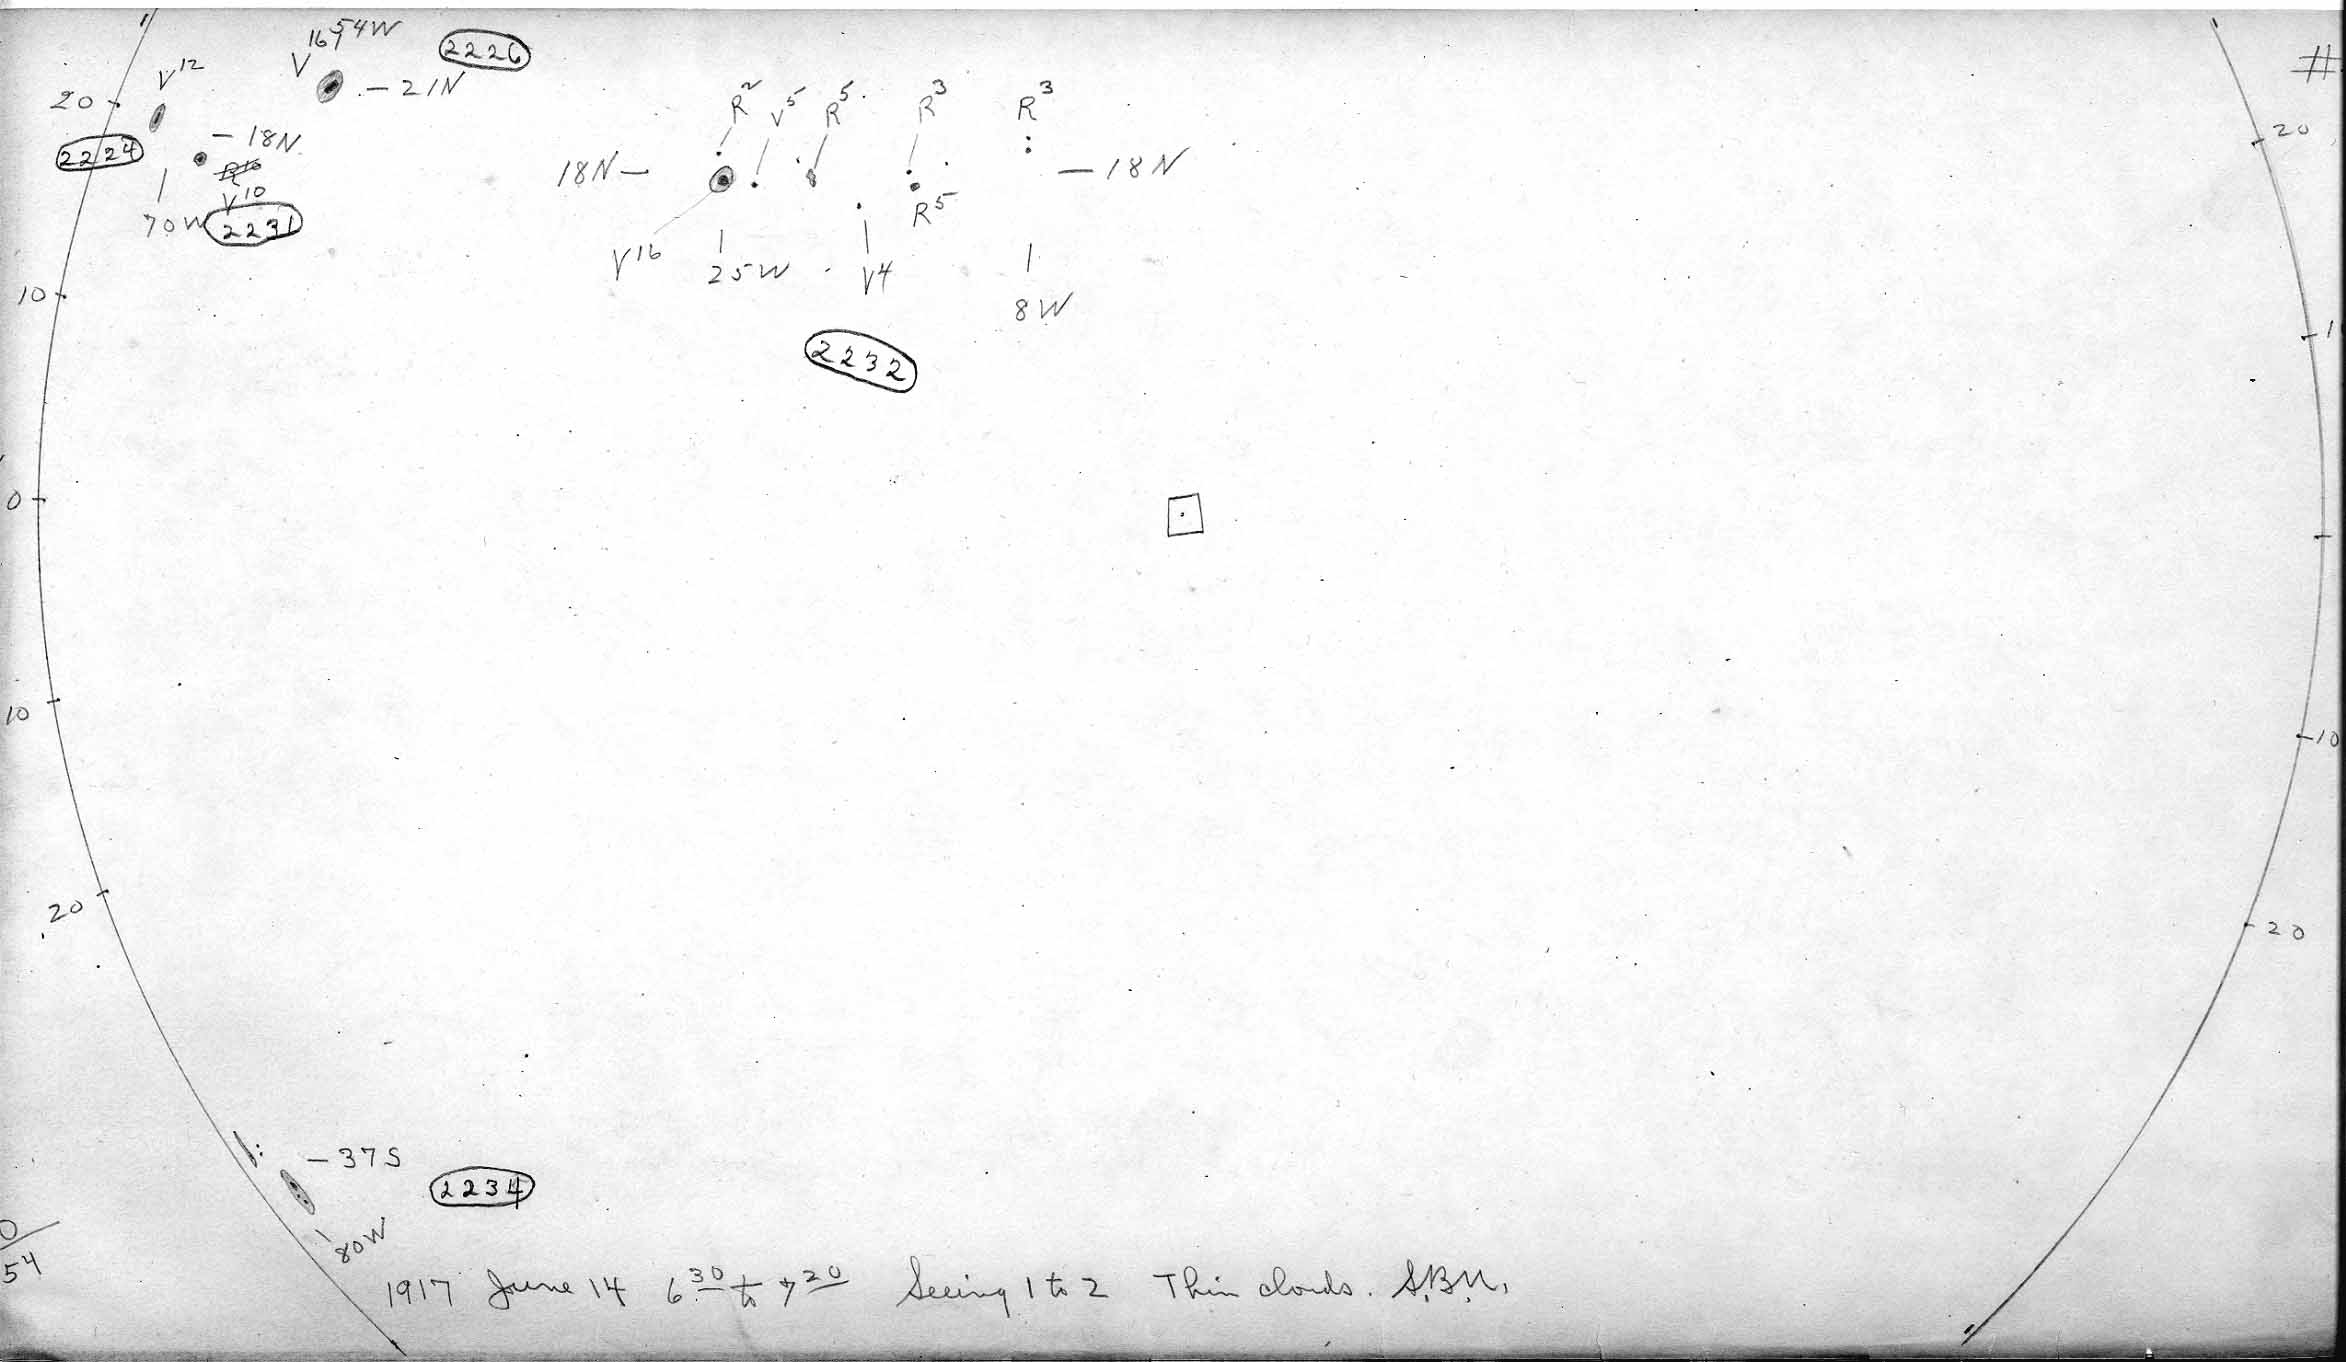 V 16, 54W
2226
V 12
- 21N
20
2224
- 18N
V 10
70W
2231
R 2
V 5
R 5
R 3
R 3
18N -
- 18N
R 5
V 16
25W
V 4
8W
2232
#
20
10
1
0
10
-10
20
-20
- 37S
2234
80W
0
54
1917 June 14 6 30 to 7 20 Seeing 1 to 2 Thin clouds. S.B.N.